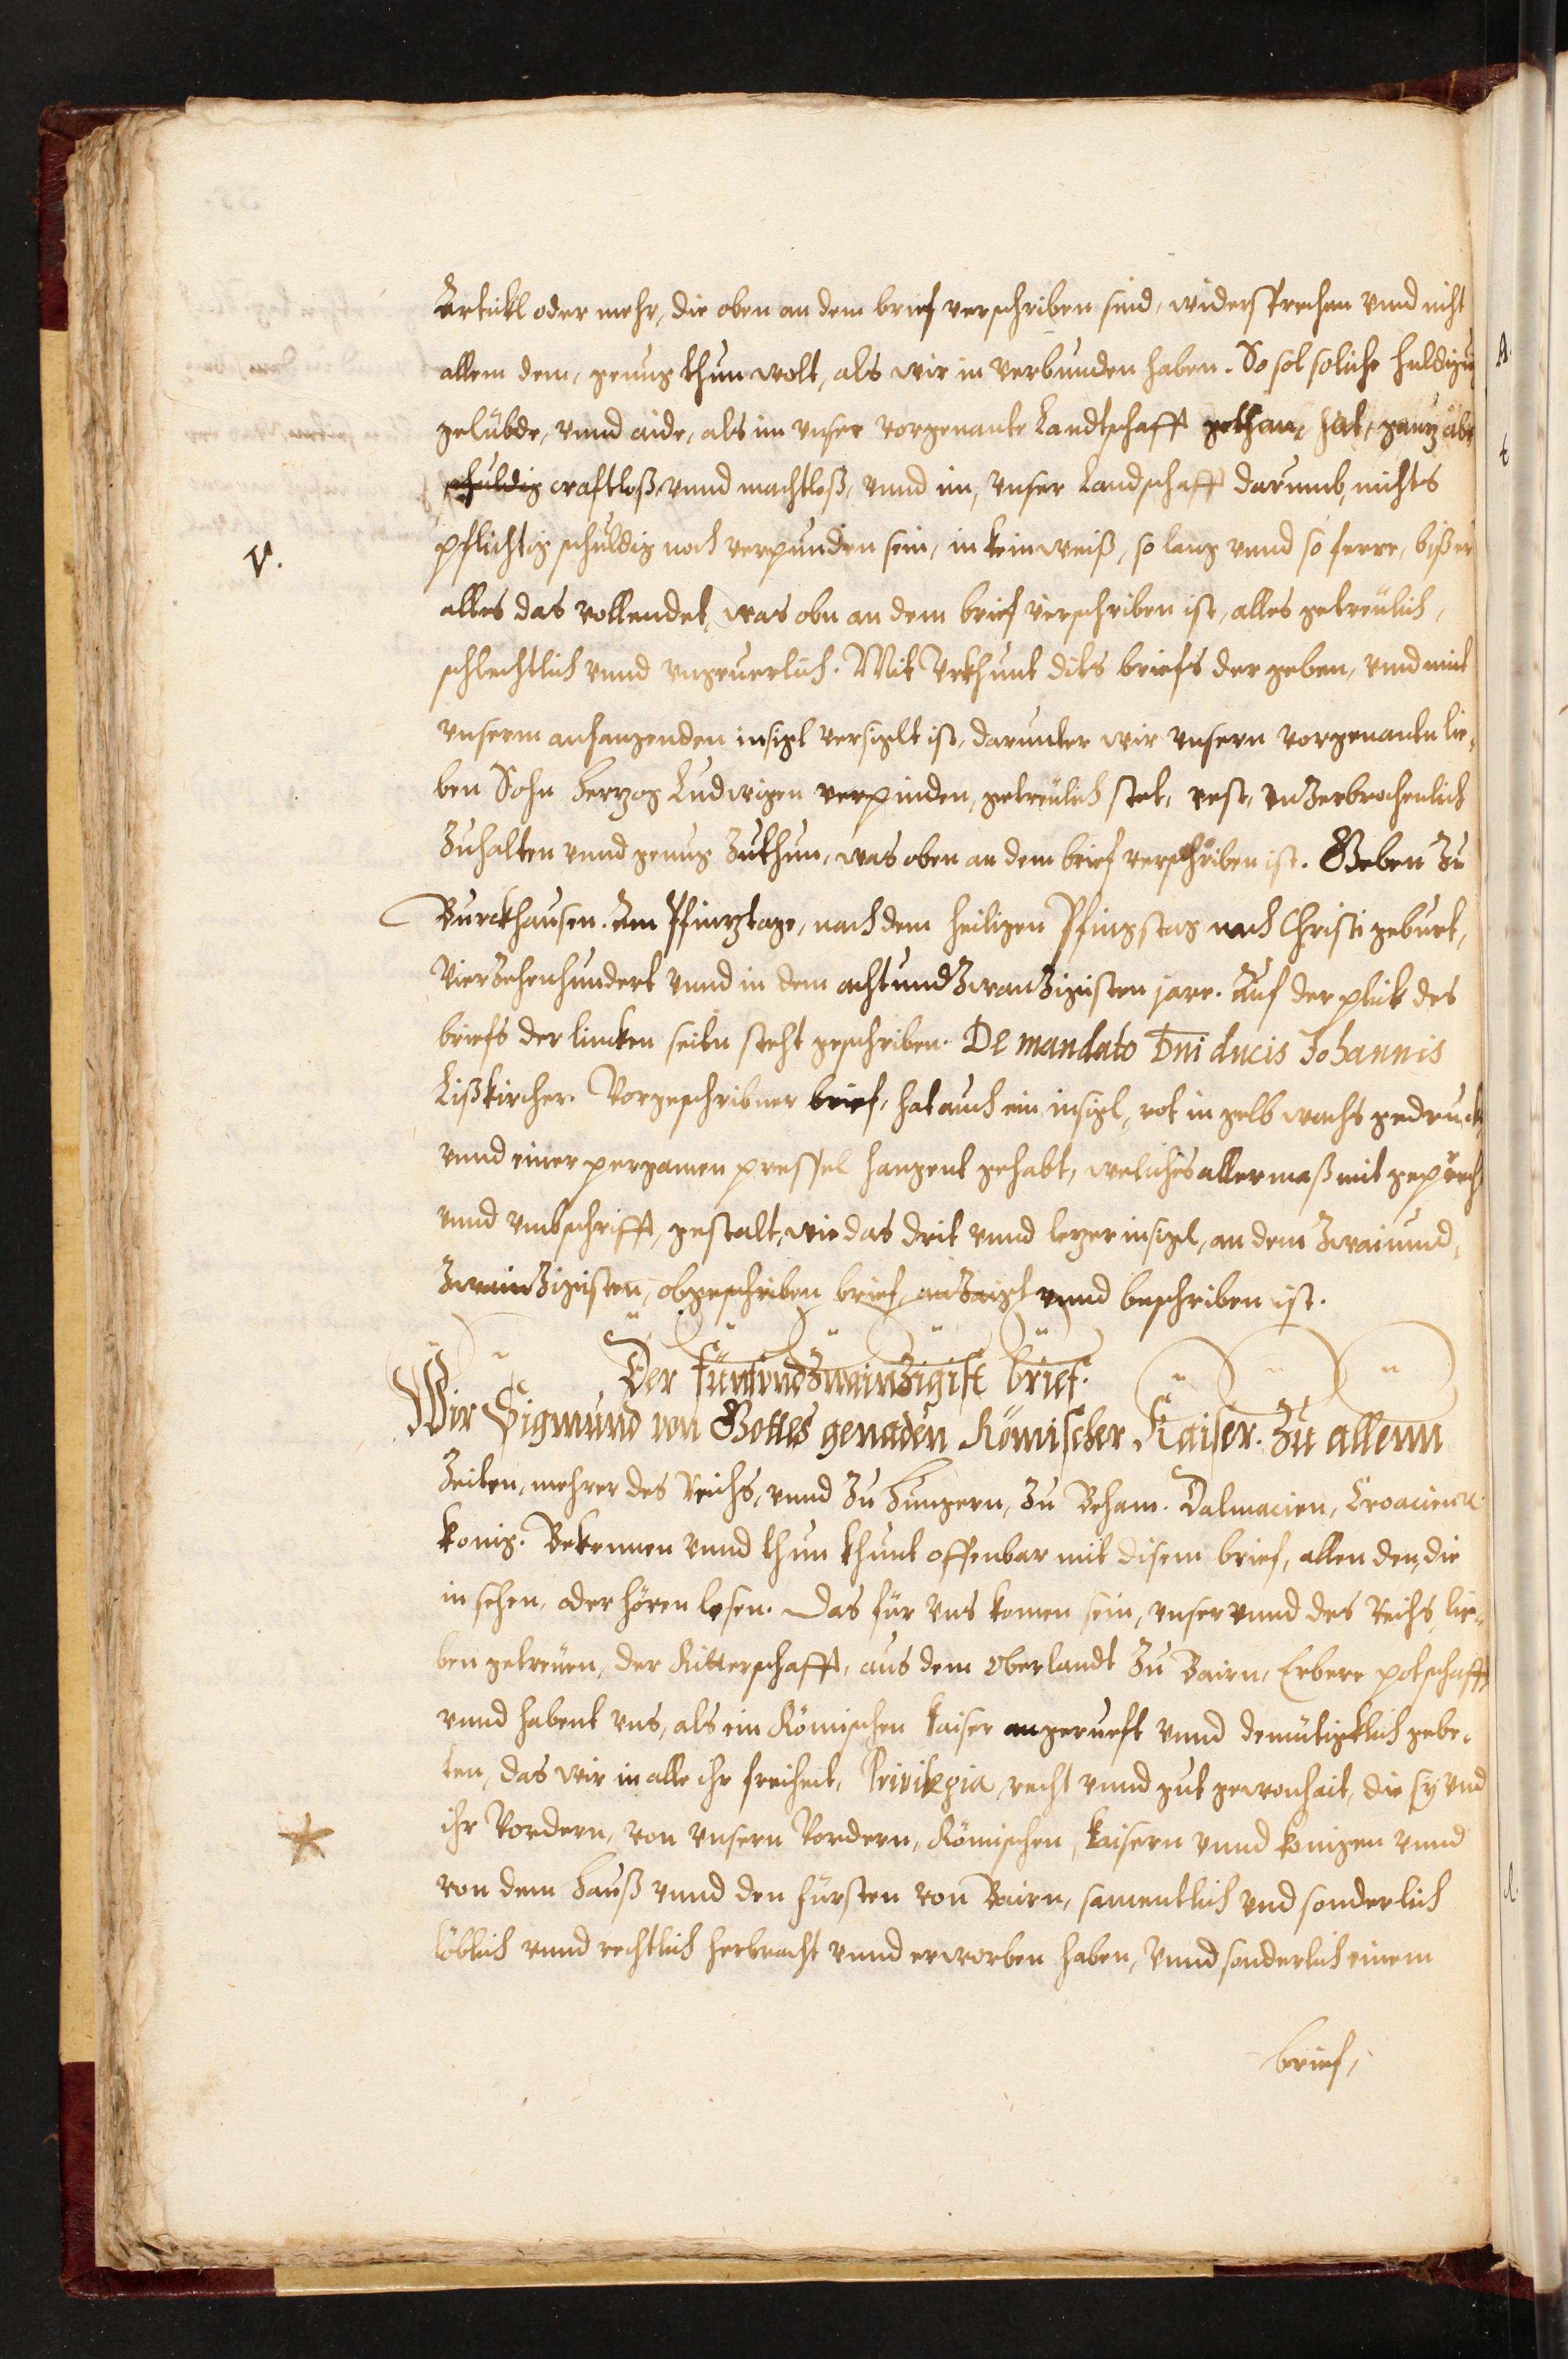 Artickl oder mehr, die oben an dem brief verschriben sind, widersprechen vnnd nicht
allem dem, genug thun wolt, als wir in verbunden haben. So sol soliche huldigu
gelübde, vnnd aide, als im vnser vorgenante Landtschafft gethan hat, gantz ab
schuldig crafftloß vnnd machtloß, vnnd im, vnser Landschafft darumb, nichts
pflichtig schuldig noch verpunden sein, in kein weiß, so lang vnnd so ferre, biß er
V.
alles das vollendet, was obn an dem brief verschriben ist, alles getreulich,
schlechtlich vnnd vngeuerlich. Mit Vrkhunt dits briefs der geben, vnnd mit
vnserm anhangenden insigl versiglt ist, darunter wir vnsern vorgenantn lie,
ben Sohn Hertzog Ludwigen verpinden, getreulich stet, vest, vnzerbrochenlich
zuhalten vnnd genug zuthun, was oben an dem brief verschriben ist. Geben zu
Burckhausen. Am Pfintztage, nach dem heiligen Pfingstag nach Christi geburt,
Vierzehenhundert vnnd in dem achtundzwanzigisten jare. Auf der plick des
briefs der lincken seitn steht geschriben. De mandato Dni ducis Johannis
Lißkircher. Vorgeschribner brief, hat auch ein insigl, rot in gelb wachs gedruckt,
vnnd einer pergamen pressel hangent gehabt, welches allermaß mit geprech
vnnd vmbschrifft, gestalt, wie das drit vnnd letzer insigl, an dem zwaiund,
zwainzigisten, obgeschriben brief, anzaigt vnnd beschriben ist.
Der fünfundzwainzigist brief.
Wir Sigmund von Gottes genaden Römischer Kaiser. Zu allenn
Zeiten, mehrer des Reichs, vnnd zu Hungern, zu Beham. Dalmacien, Croacien rc.
konig. Bekennen vnnd thun khunt offenbar mit disem brief, allen den, die
in sehen, oder hören lesen. Das für vns komen sein, vnser vnnd des Reichs, lie,
ben getreuen, der Ritterschafft, aus dem Oberlandt zu Bairn, Erbere potschafft
vnnd habent vns, als ein Römischen kaiser angerueft vnnd demütigklich gebe,
ten, das wir in alle ihr freiheit, Privilegia, recht vnnd gut gewonhait, die sy vnd
ihr Vordern, von vnsern Vordern, Römischen, kaisern vnnd konigen vnnd
von dem Hauß vnnd den fürsten von Bairn, samentlich vnd sonderlich
löblich vnnd rechtlich herbracht vnnd erworben haben, Vnnd sonderlich einem
brief,